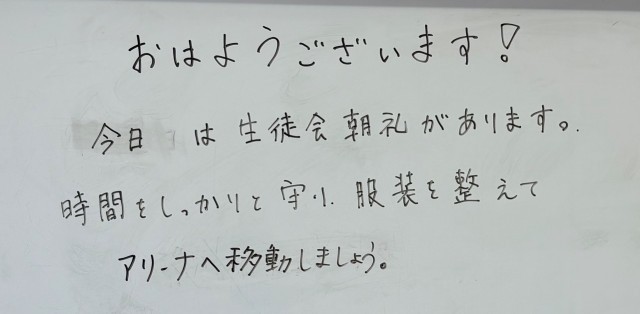 おはようございます!
今日は生徒会朝礼があります。
時間をしっかりと守り、服装を整えて
アリーナへ移動しましょう。